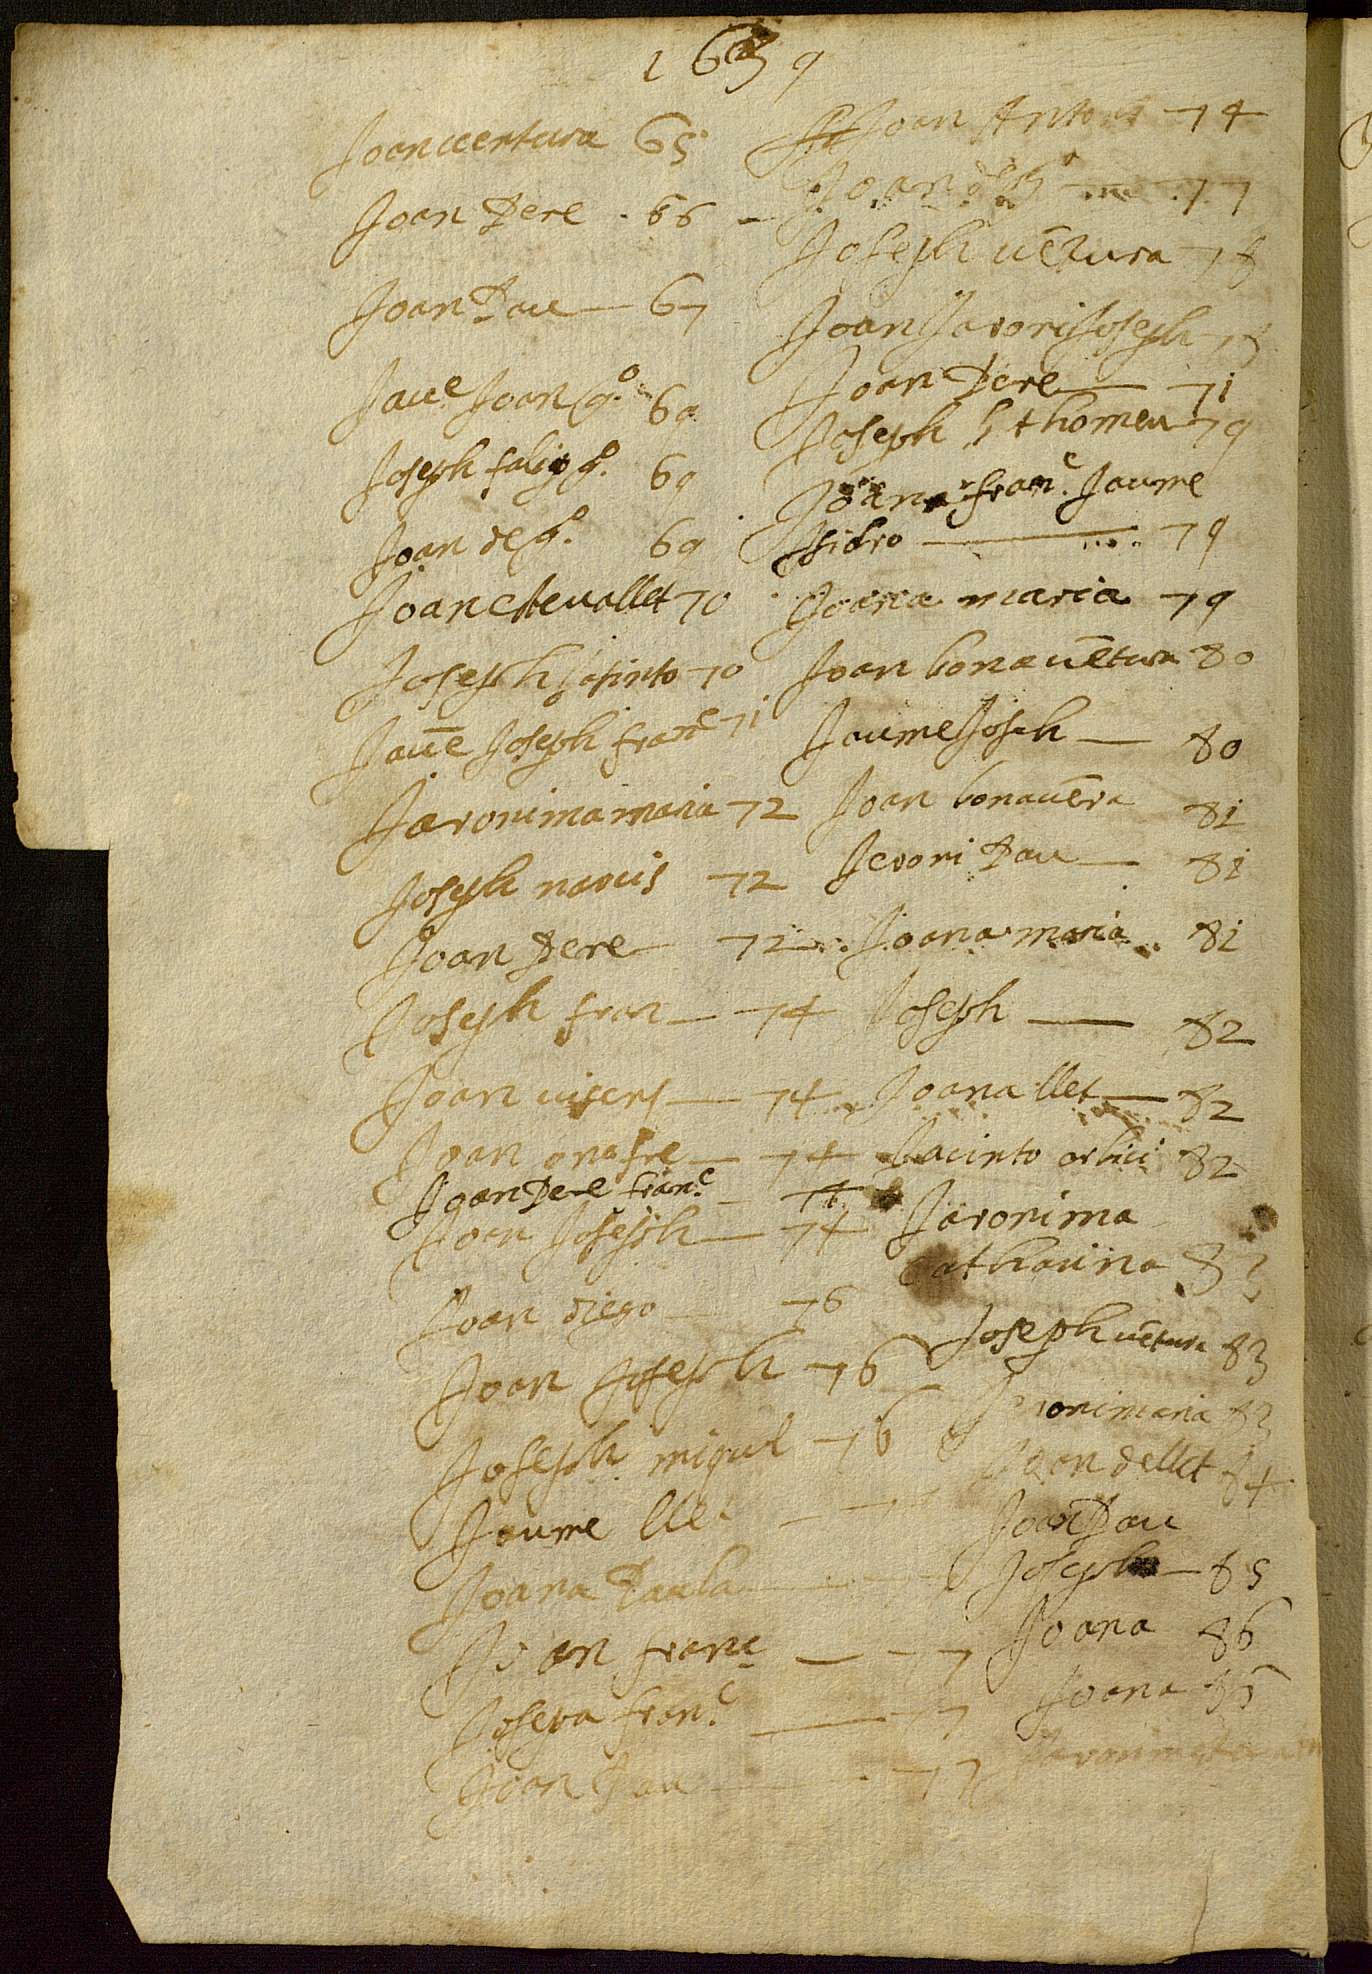 Joan uentura 65
Joan Pere . 66
Joan Pau — 67
Jaue Joan gº. 69
Joseph felip gº. 69
Joan de gº. 69
Joan cheuallet 70
Joseph Jasinto 70
Jaūe Joseph franc 71
Jaronima maria 72
Joseph narcis 72
Joan Pere 72
Joseph fran — 74
Joan uisens — 74
Joan onofre — 74
Joan Pere franc — 74
Joan Joseph — 74
Joan diego — 76
Joan Joseph 76
Joseph miquel 76
Jaume llet —
Joana Paula —
Joan franc — 77
Josepa franc — 77
Joan Pau — 77
Joan Antoni 74
Joan de gº — 77
Joseph uētura 78
Joan Jaroni Joseph 78
Joan Pere — 71
Joseph thomeu 79
Joan franc. Jaume
Isidro — 79
Joana maria 79
Joan bonauētura 80
Jaume Joseh — 80
Joan bonauēra 81
Jeroni Pau — 81
Joana maria 81
Joseph — 82
Joana llet — 82
Jacinto 82
Jaronima
Catharina 83
Joseph uētura 83
83
Joan dellet 84
Joan Pau
Joseph — 85
Joana 86
Joana 86